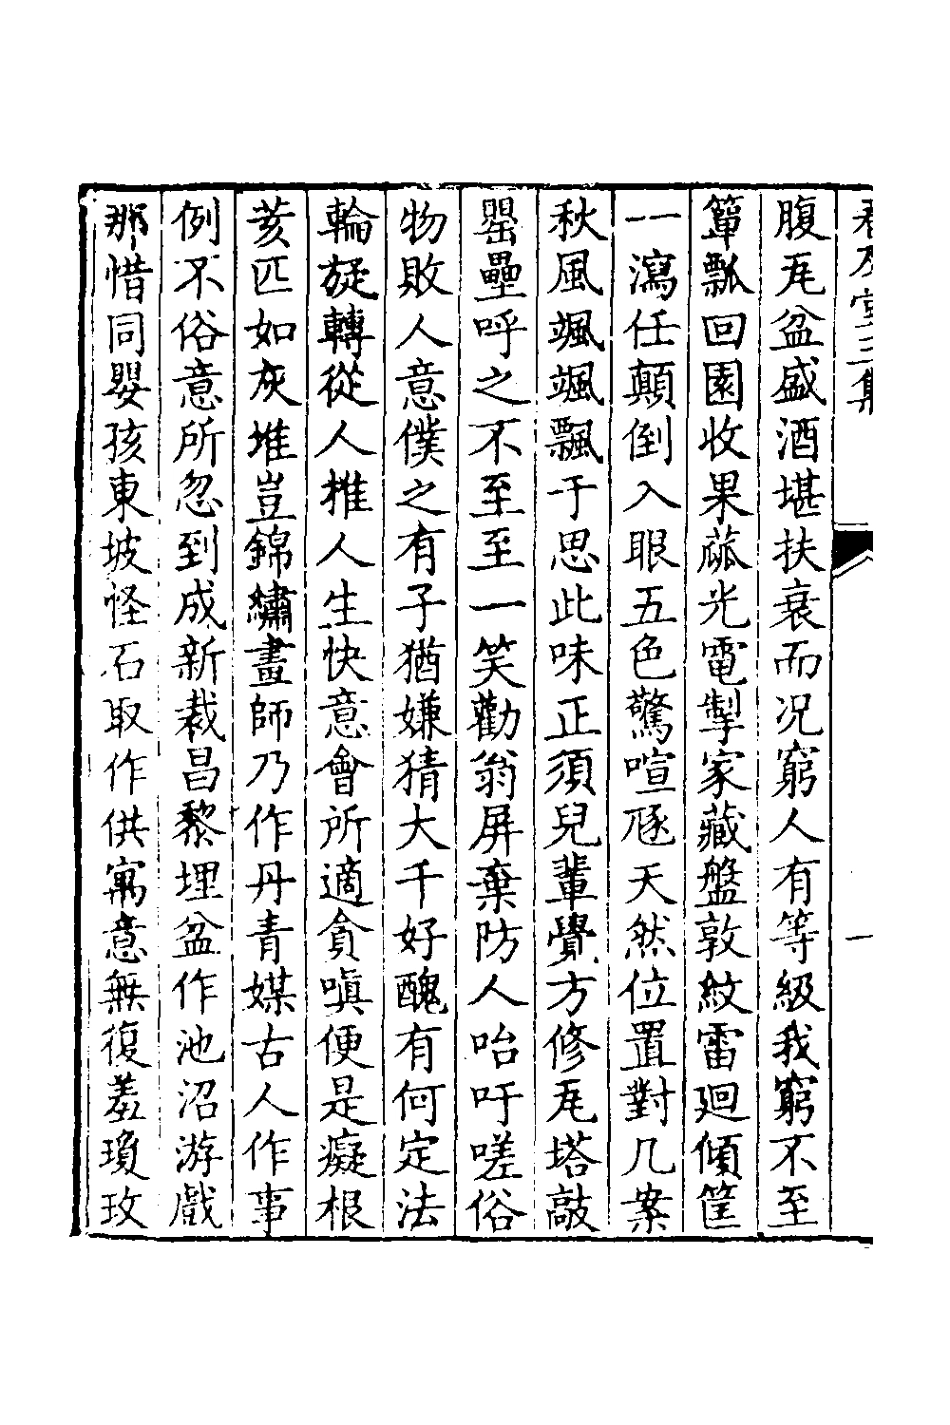 腹瓦盆盛酒堪扶衰而况窮人有等級我窮不至
簞瓢回園收果蓏光電掣家藏盤敦紋雷廻傾筐
一瀉任顛倒入眼五色驚喧豗天然位置對几案
秋風颯颯飄于思此味正須兒輩覺方修瓦塔敲
罌罍呼之不至至一笑勸翁屏棄防人咍吁嗟俗
物敗人意僕之有子猶嫌猜大千好醜有何定法
輪旋轉從人推人生快意會所適貪嗔便是癡根
荄匹如灰堆豈錦繡畫師乃作丹青媒古人作事
例不俗意所忽到成新裁昌黎埋盆作池沼游戲
那惜同嬰孩東坡怪石取作供寓意無復羞瓊玫
一